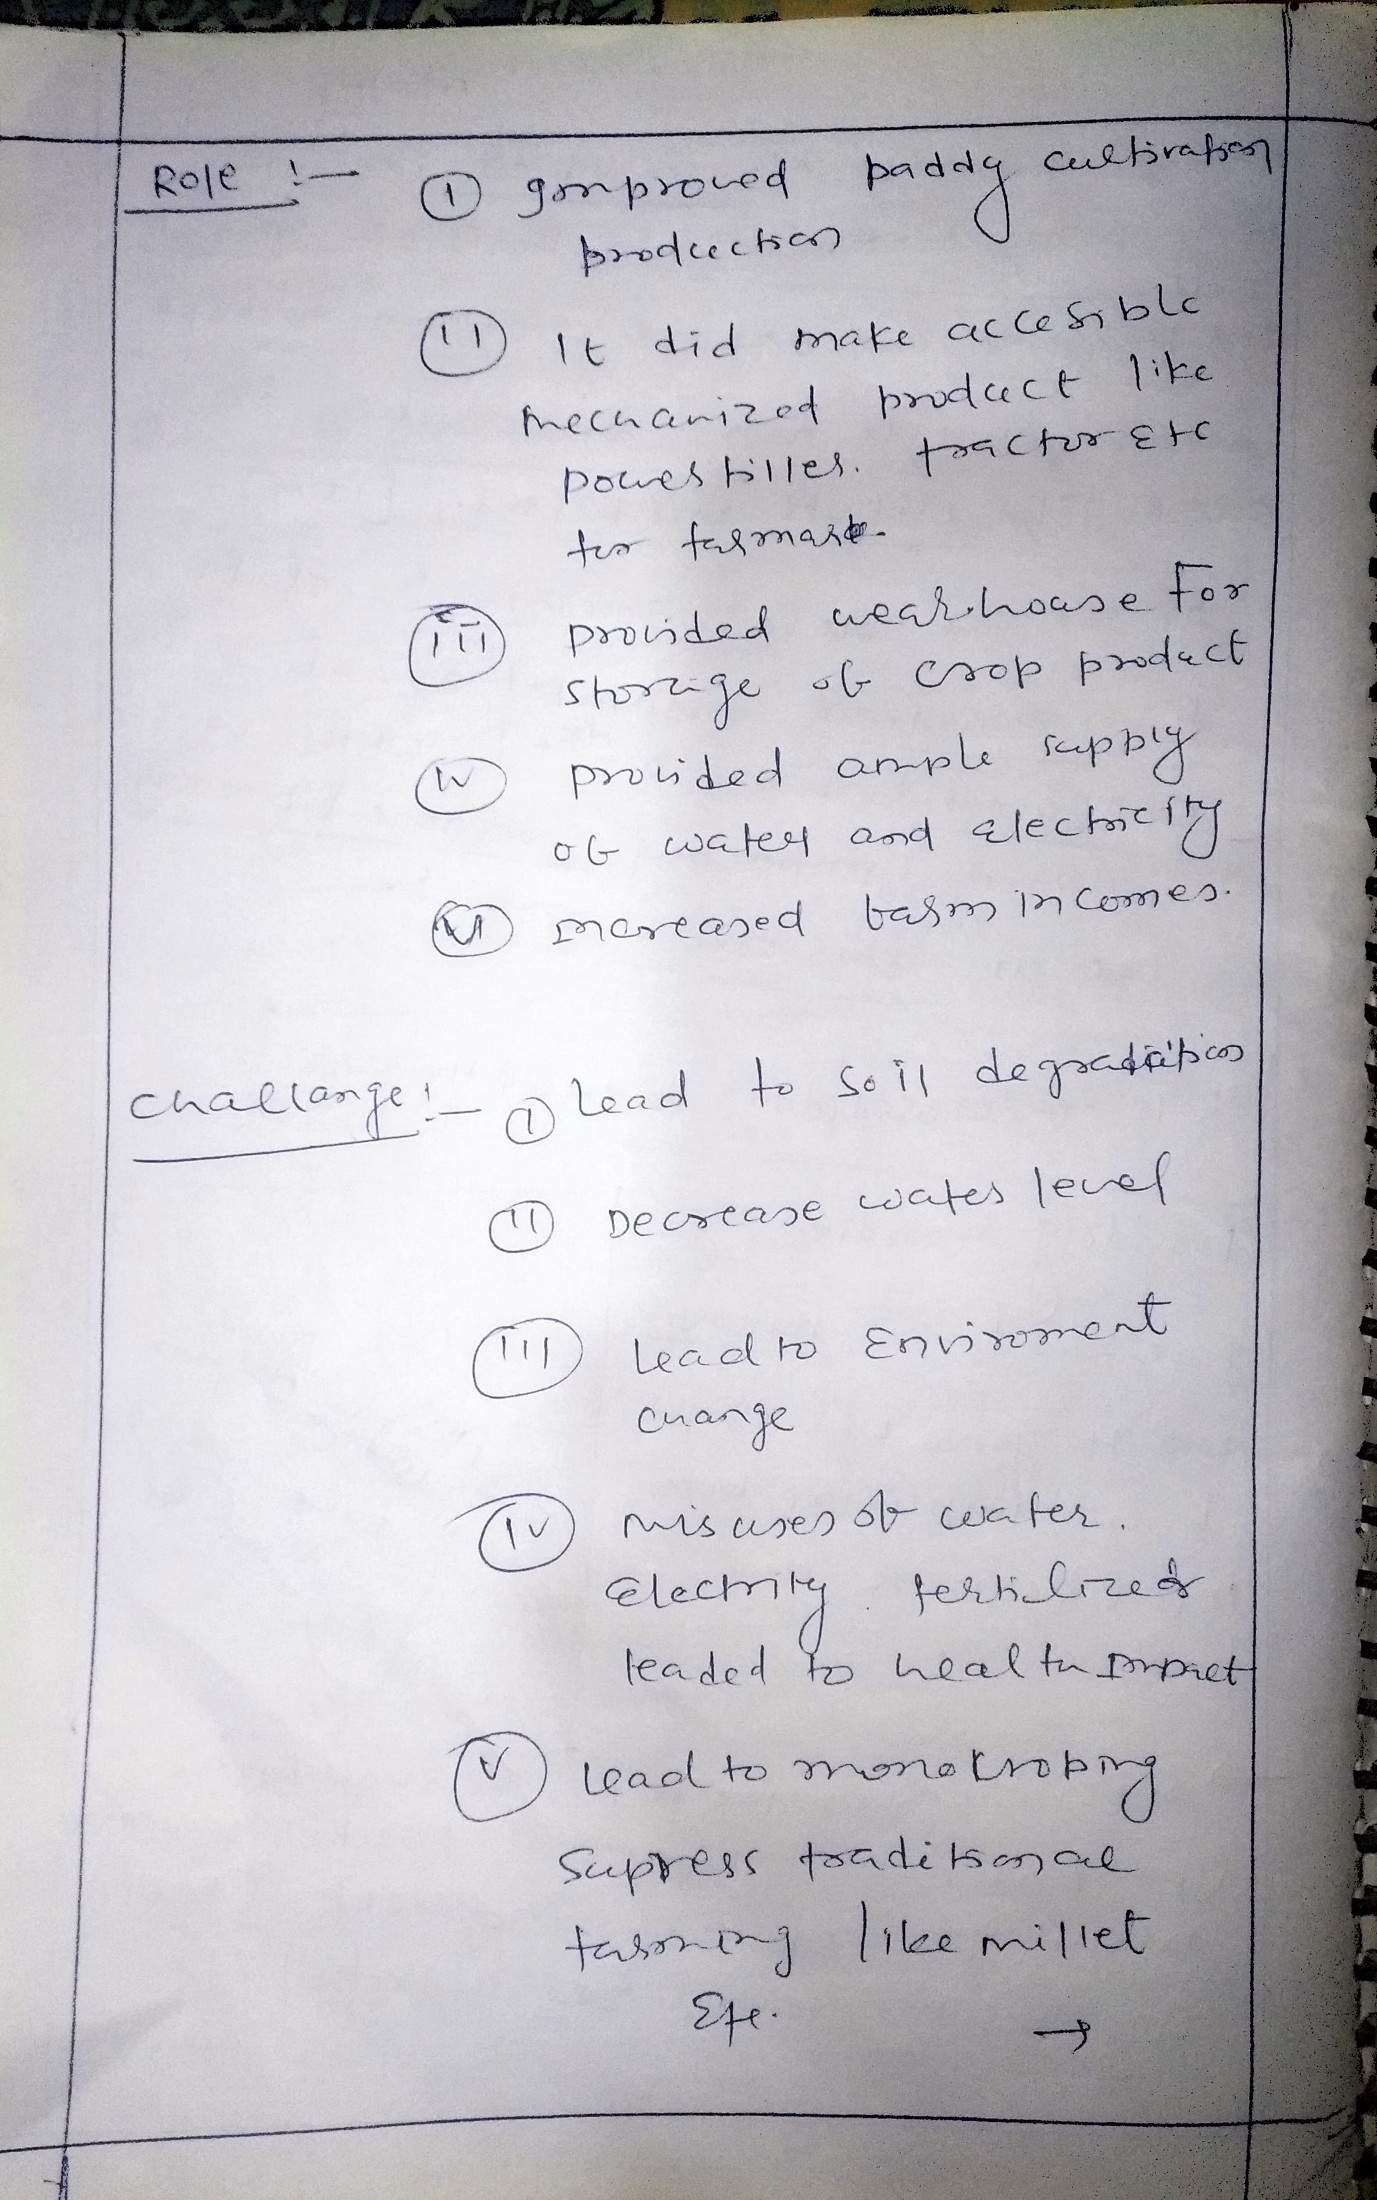 Role :- (i) Improved paddy cultivation
production
(ii) It did make accesible
mechanized product like
power tiller. tractor Etc
for farmar.
(iii) provided wearhouse For
storage of crop product
(iv) provided ample supply
of water and electricity
(v) increased farm incomes.
Challange :- (i) Lead to soil degradation
(ii) Decrease water level
(iii) Lead to Enviroment
change
(iv) misuses of water.
Electrity. fertilizer
leaded to health impact
(v) lead to monokroping
supress traditional
farming like millet
Etc. →